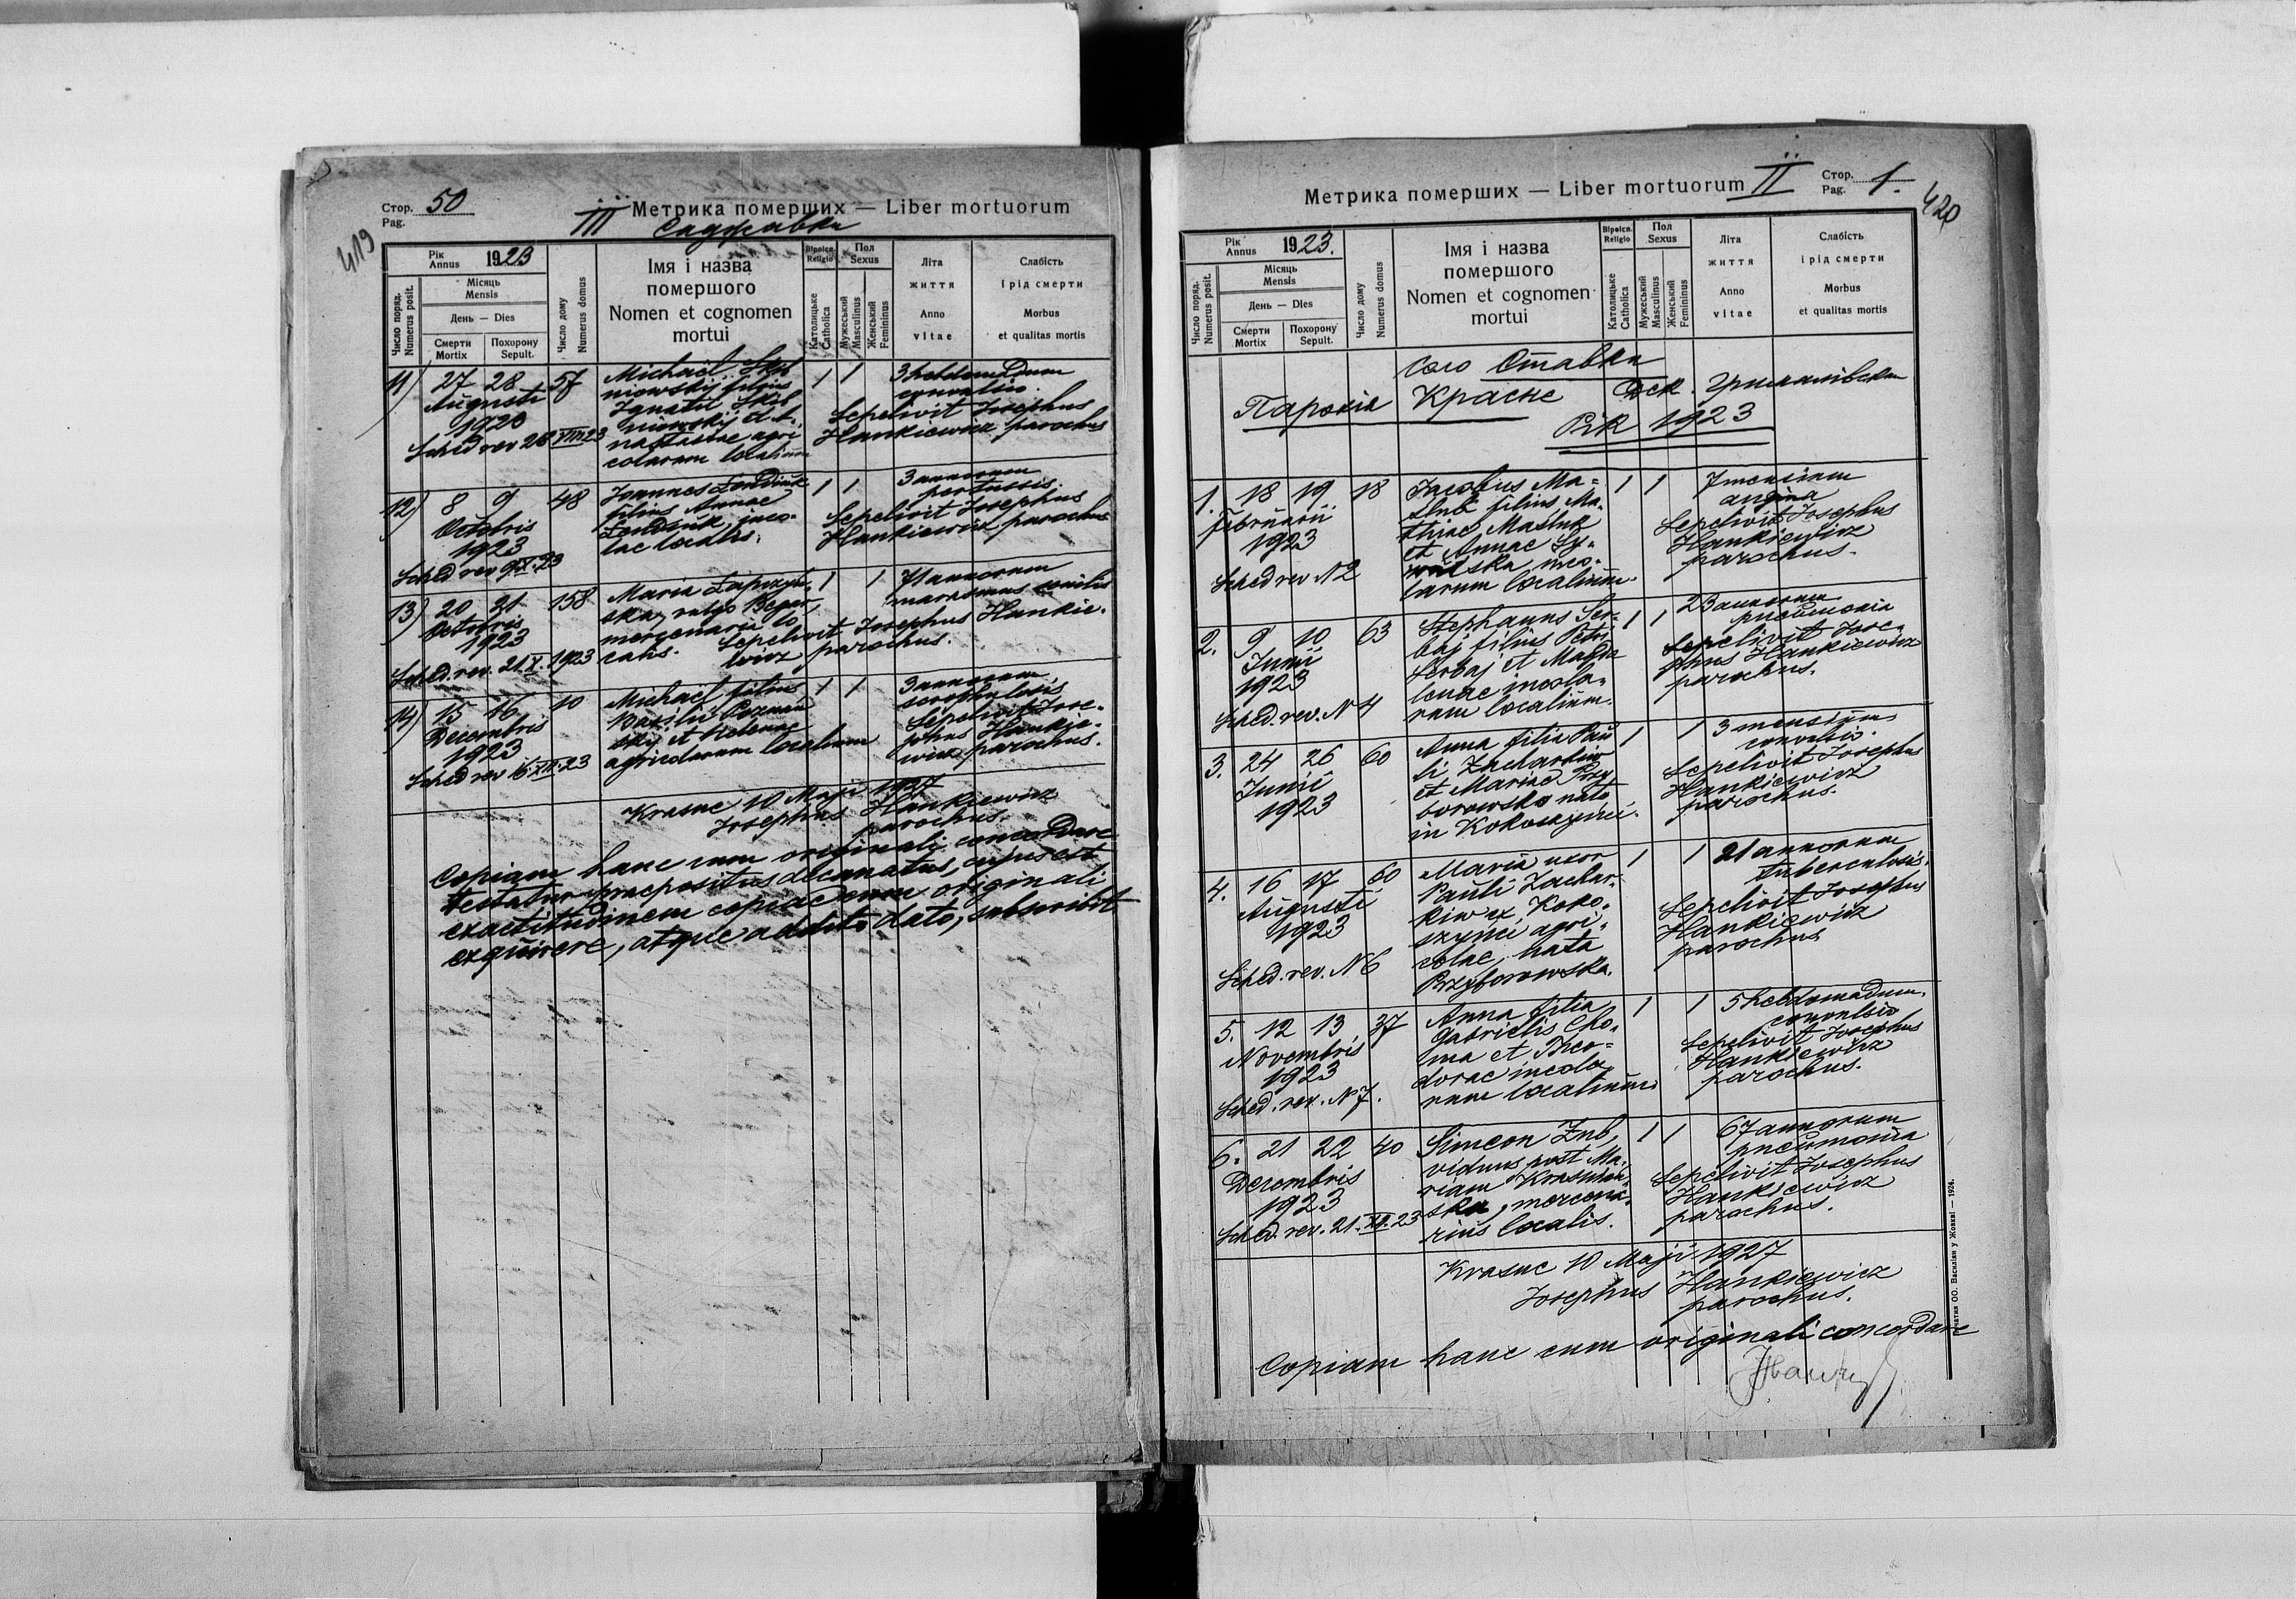 419
Стор.
Pag. 50
III Метрика померших — Liber mortuorum
Саджавки
Рік
Annus 1923
Число поряд.
Numerus posit.
Місяць
Mensis
День — Dies
Смерти
Mortix
Похорону
Sepult.
Число дому
Numerus domus
Імя і назва
помершого
Nomen et cognomen
mortui
Віроісп.
Religio
Католицьке
Catholica
Пол
Sexus
Мужеський
Masculinus
Женський
Femininus
Літа
життя
Anno
vitae
Слабість
і рід смерти
Morbus
et qualitas mortis
11) 27 28 57 Michael Skib 1 1 3 hebdomadum
Augusti niowskij filius convulsio
1923 Ignatii Skib Sepelivit Josephus
niowskij et Hankiewicz parochus
Sched rev 28 VIII 23 nastasiae agri
colarum localium
12) 8 9 48 Joannes Lendziuk 1 1 3 annorum
Octobris filius Annae pertussis.
1923 Lendziuk, inco- Sepelivit Josephus
Sched rev 9 X. 23 lae localis. Hankiewicz parochus
13) 20 21 158 Maria Lapczyń- 1 1 71 annorum
Octobris ska, vulgo marasmus senilis
1923 mercenaria lo Sepelivit Josephus Hankie-
Sched. rev. 21. X. 1923 calis. wicz parochus.
14) 15 16 10 Michael filius 1 1 3 annorum
Decembris Basilii scrophulosis
1923 skij et Helenae Sepelivit Jose-
Sched rev 16. XII. 23 agricolarum localium phus Hankie-
wicz parochus.
Krasne 10 Maji 1927
Josephus Hankiewicz
parochus.
Copiam hanc cum originali concordare
testatur praepositus decanatus, cujus est
exactitudinem copiae cum originali
exquirere, atque addito dato, subscribit
Метрика померших — Liber mortuorum II
Стор.
Pag. 1.
420
Рік
Annus 1923.
Число поряд.
Numerus posit.
Місяць
Mensis
День — Dies
Смерти
Mortix
Похорону
Sepult.
Число дому
Numerus domus
Імя і назва
помершого
Nomen et cognomen
mortui
Віроісп.
Religio
Католицьке
Catholica
Пол
Sexus
Мужеський
Masculinus
Женський
Femininus
Літа
життя
Anno
vitae
Слабість
і рід смерти
Morbus
et qualitas mortis
Село Ставки
Парохія Красне Дек. Грималівски
Рік 1923
1. 18 19 18 Jacobus Ma= 1 1 7 mensium
Februarii filius Ma- angina
1923 thiae Masluk Sepelivit Josephus
et Annae Hankiewicz
Sched rev N 2 inco- parochus.
larum localium.
2. 9 10 63 Stephanus Ser- 1 1 23 annorum
Junii baj filius Petri pneumonia
1923 Serbaj et Magda Sepelivit Jose-
lenae incola- phus Hankiewicz
Sched. rev. N 4 rum localium. parochus.
3. 24 26 60 Anna filia Pau 1 1 3 mensium
Junii li Zacharkiw convulsio.
1923 et Mariae Przy Sepelivit Josephus
borowska nata Hankiewicz
in Kokoszyńci. parochus.
4. 16 17 60 Maria uxor 1 1 21 annorum
Augusti Pauli Zachar- tuberculosis.
1923 kiw ex Koko- Sepelivit Josephus
szyńci agri- Hankiewicz
Sched. rev. N 6 colae, nata parochus
Przyborowska.
5. 12 13 37 Anna filia 1 1 5 hebdomadum.
Novembris Gabrielis Cho- convulsio
1923 ma et Theo= Sepelivit Josephus
dorae incola Hankiewicz
Sched. rev. N 7. rum localium. parochus.
6. 21 22 40 Simeon Zub, 1 1 67 annorum
Decembris viduus post Ma- pneumonia
1923 riam Sepelivit Josephus
ska, mercena- Hankiewicz
Sched. rev. 21. XII. 23 rius localis. parochus.
Krasne 10 Maji 1927
Josephus Hankiewicz
parochus.
Copiam hanc cum originali concordare
Василіян у Жовкві — 1924.